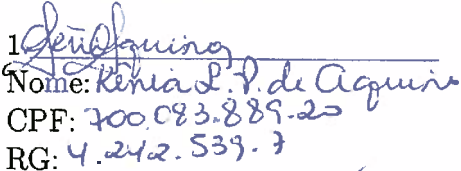 1
Nome: Kênia L. P. de Aquino
CPF: 700.083.889-20
RG: 4.242.539.7